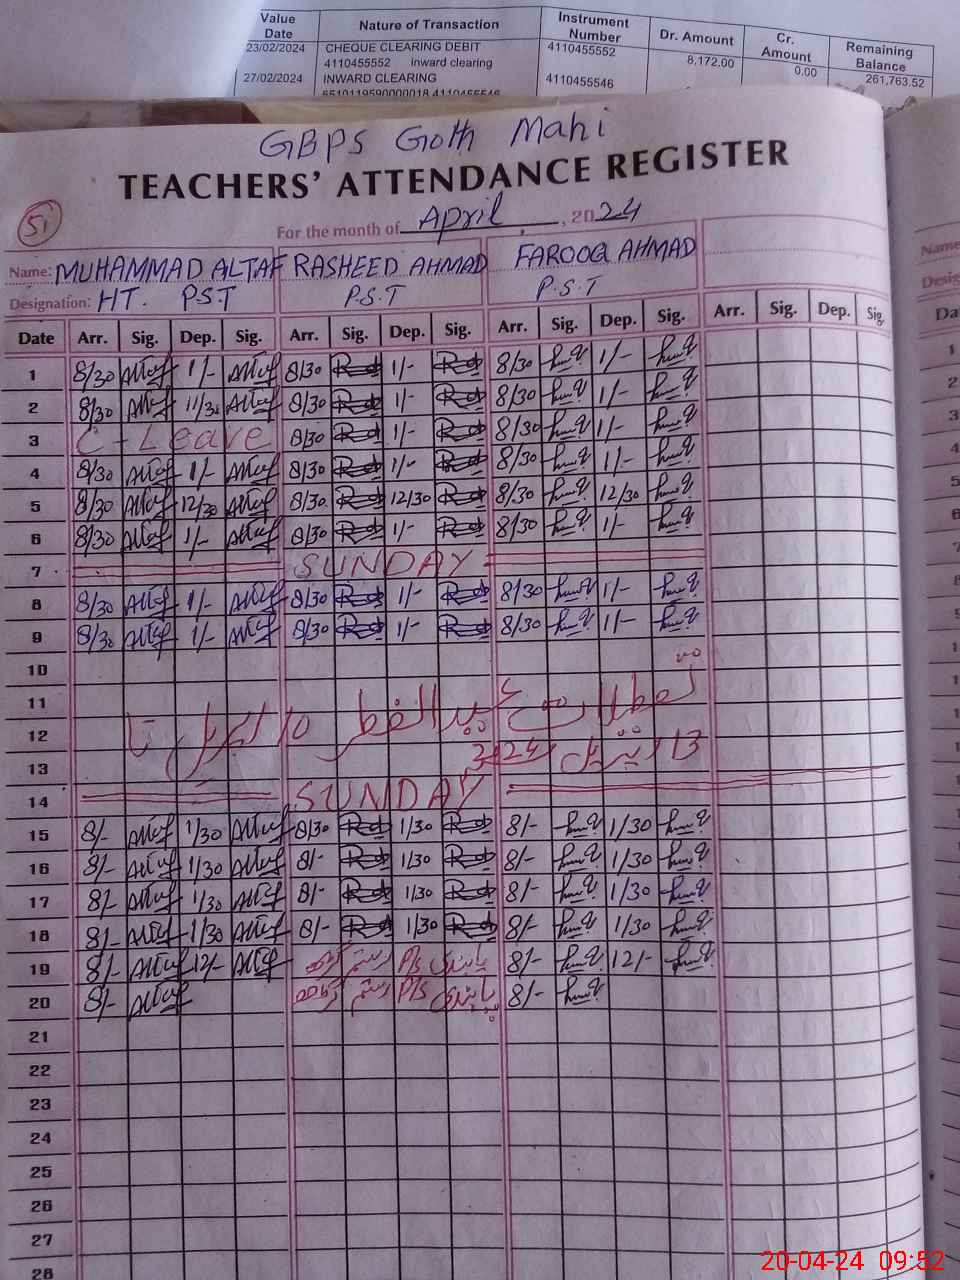 Value Date Nature of Transaction Instrument Number Dr. Amount Cr. Amount Remaining Balance
23/02/2024 CHEQUE CLEARING DEBIT 4110455552 8,172.00 0.00 261,763.52
4110455552 inward clearing
27/02/2024 INWARD CLEARING 4110455546
GBPS Goth Mahi
TEACHERS' ATTENDANCE REGISTER
51
For the month of April, 2024
Name: MUHAMMAD ALTAF RASHEED AHMAD FAROOQ AHMAD
Designation: HT. P.S.T P.S.T P.S.T
Date Arr. Sig. Dep. Sig. Arr. Sig. Dep. Sig. Arr. Sig. Dep. Sig. Arr. Sig. Dep. Sig.
1 8/30 Altaf 1/- Altaf 8/30 1/- 8/30 1/-
2 8/30 Altaf 11/30 Altaf 8/30 1/- 8/30 1/-
3 C-Leave 8/30 1/- 8/30 1/-
4 8/30 Altaf 1/- Altaf 8/30 1/- 8/30 1/-
5 8/30 Altaf 12/30 Altaf 8/30 12/30 8/30 12/30
6 8/30 Altaf 1/- Altaf 8/30 1/- 8/30 1/-
7 SUNDAY
8 8/30 Altaf 1/- Altaf 8/30 1/- 8/30 1/-
9 8/30 Altaf 1/- Altaf 8/30 1/- 8/30 1/-
10
11 تعطیلات عید الفطر 10 اپریل تا
12
13 13 اپریل 2024
14 SUNDAY
15 8/- Altaf 1/30 Altaf 8/30 1/30 8/- 1/30
16 8/- Altaf 1/30 Altaf 8/- 1/30 8/- 1/30
17 8/- Altaf 1/30 Altaf 8/- 1/30 8/- 1/30
18 8/- Altaf 1/30 Altaf 8/- 1/30 8/- 1/30
19 8/- Altaf 12/- Altaf P/S رستم 8/- 12/-
20 8/- Altaf P/S رستم 8/-
21
22
23
24
25
26
27
28
20-04-24 09:52